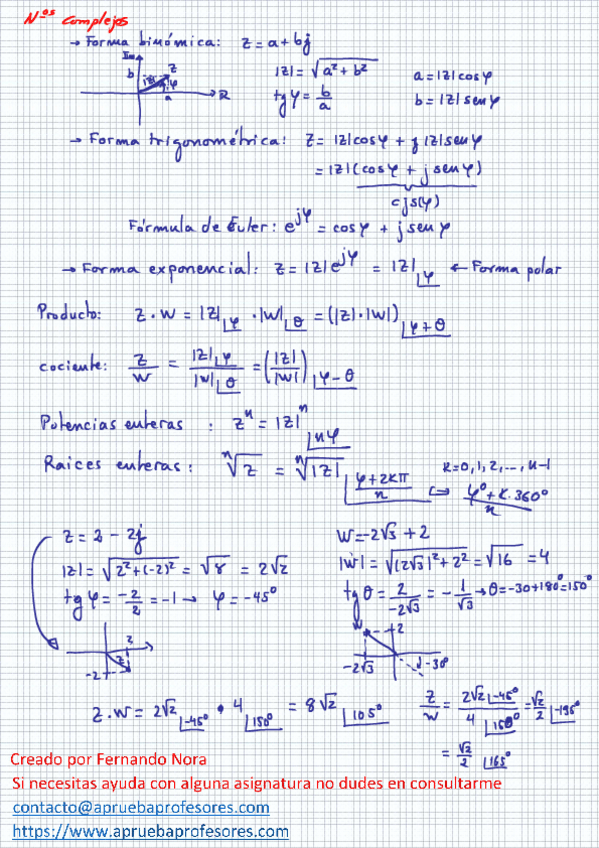 Nºs Complejos
→ Forma binómica: z = a + bj
Im
b |z| z φ
a R
|z| = √(a² + b²) a = |z| cos φ
tg φ = b/a b = |z| sen φ
→ Forma trigonométrica: z = |z| cos φ + j |z| sen φ
= |z| (cos φ + j sen φ)
cjs(φ)
Fórmula de Euler: e^(jφ) = cos φ + j sen φ
→ Forma exponencial: z = |z| e^(jφ) = |z|∟φ ← Forma polar
Producto: z · w = |z|∟φ · |w|∟θ = (|z| · |w|)∟φ + θ
cociente: z/w = |z|∟φ / |w|∟θ = (|z|/|w|)∟φ - θ
Potencias enteras : zⁿ = |z|ⁿ∟nφ
Raices enteras : ⁿ√z = ⁿ√|z| ∟(φ + 2kπ)/n k = 0, 1, 2, ..., n-1
↪ (φº + k·360º)/n
z = 2 - 2j w = -2√3 + 2
|z| = √(2² + (-2)²) = √8 = 2√2 |w| = √((2√3)² + 2²) = √16 = 4
tg φ = -2/2 = -1 → φ = -45º tg θ = 2/(-2√3) = -1/√3 → θ = -30 + 180º = 150º
2 z -2
w 2 -2√3 -30º
z · w = 2√2∟-45º · 4∟150º = 8√2∟105º z/w = 2√2∟-45º / 4∟150º = √2/2∟-195º
= √2/2∟165º
Creado por Fernando Nora
Si necesitas ayuda con alguna asignatura no dudes en consultarme
contacto@apruebaprofesores.com
https://www.apruebaprofesores.com